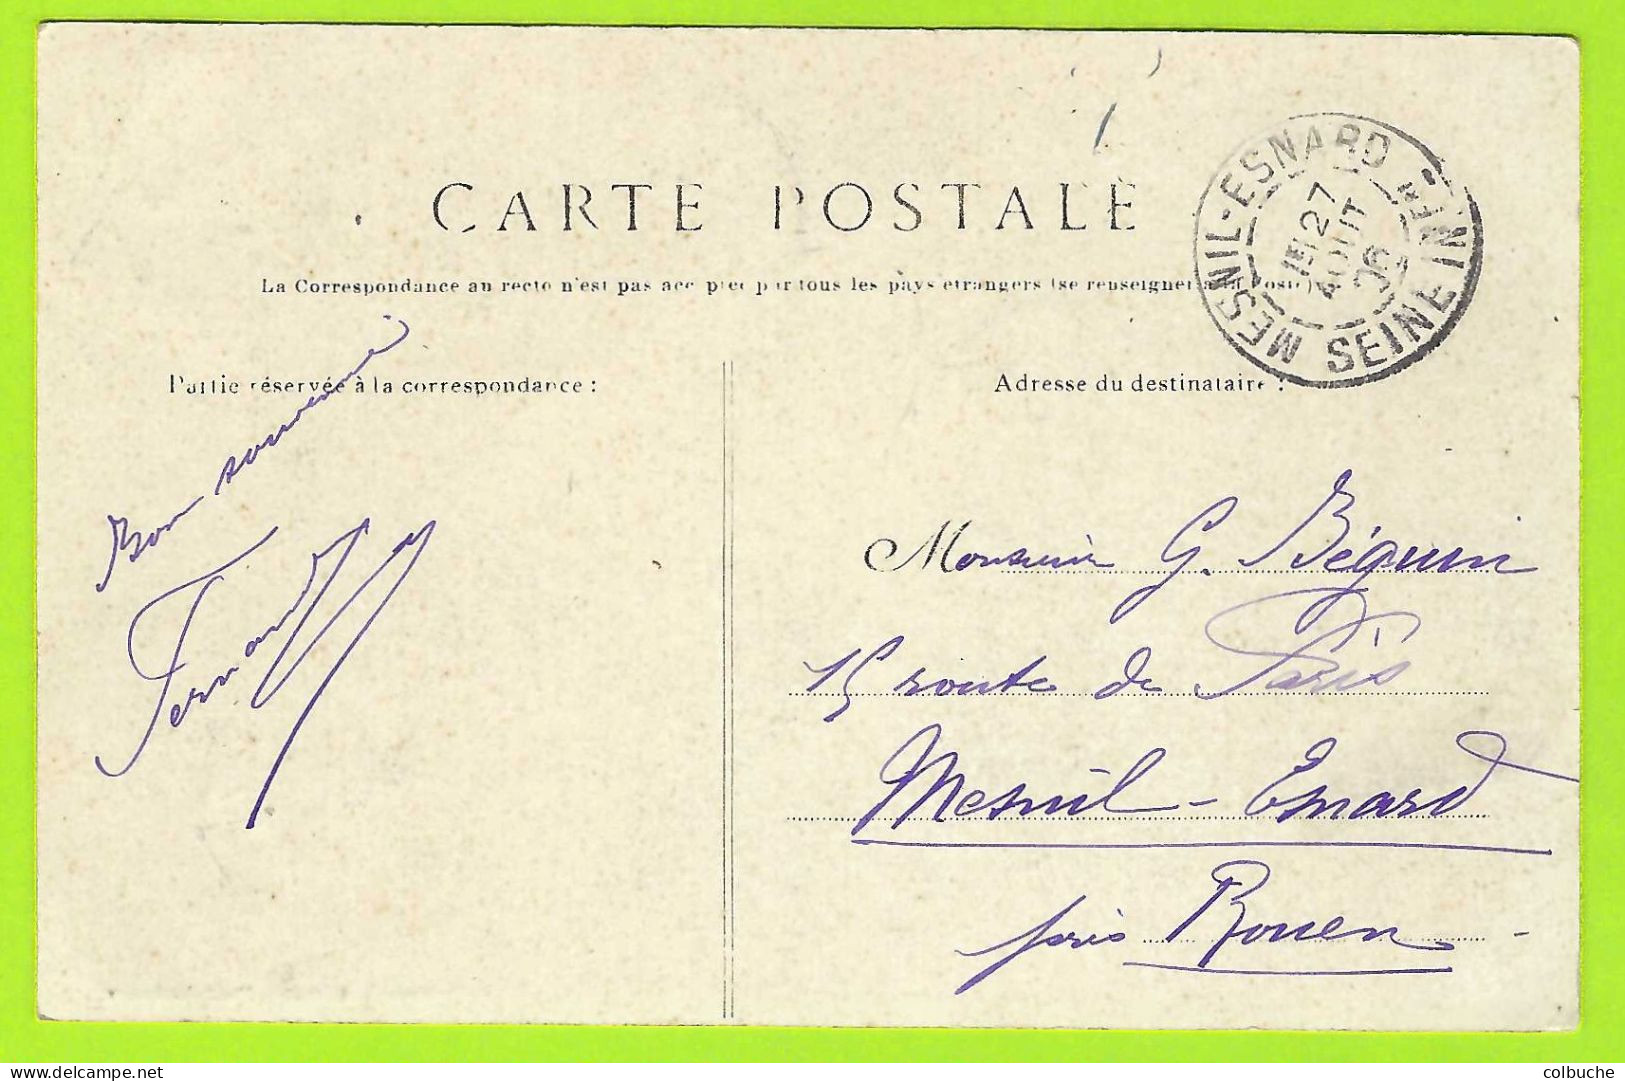 CARTE POSTALE
La Correspondance au recto n'est pas acceptée par tous les pays étrangers (se renseigner à la Poste)
MESNIL-ESNARD
SEINE INFRE
15 27
AOUT
06
Partie réservée à la correspondance :
Adresse du destinataire :
Bon souvenir
Fernand
Monsieur G. Béguin
15 route de Paris
Mesnil-Esnard
près Rouen
delcampe.net
colbuche